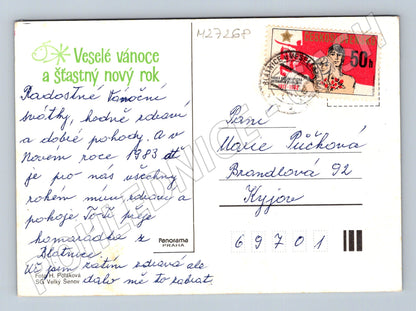 M2726P
Veselé vánoce
a šťastný nový rok
50h
Radostné Vánoční
svátky, hodně zdraví
a dobré pohody. A v
Novém roce 1983 ať
je pro nás všechny
rokem míru, zdraví a
pokoje Totě přeje
kamarádka z
Blatnice.
Už jsem zatím zdravá ale
dalo mě to zabrat.
Foto H. Poláková
SG Velký Šenov
Panorama
PRAHA
Paní
Marie Půčková
Brandlova 92
Kyjov
69701
POHLEDNICE